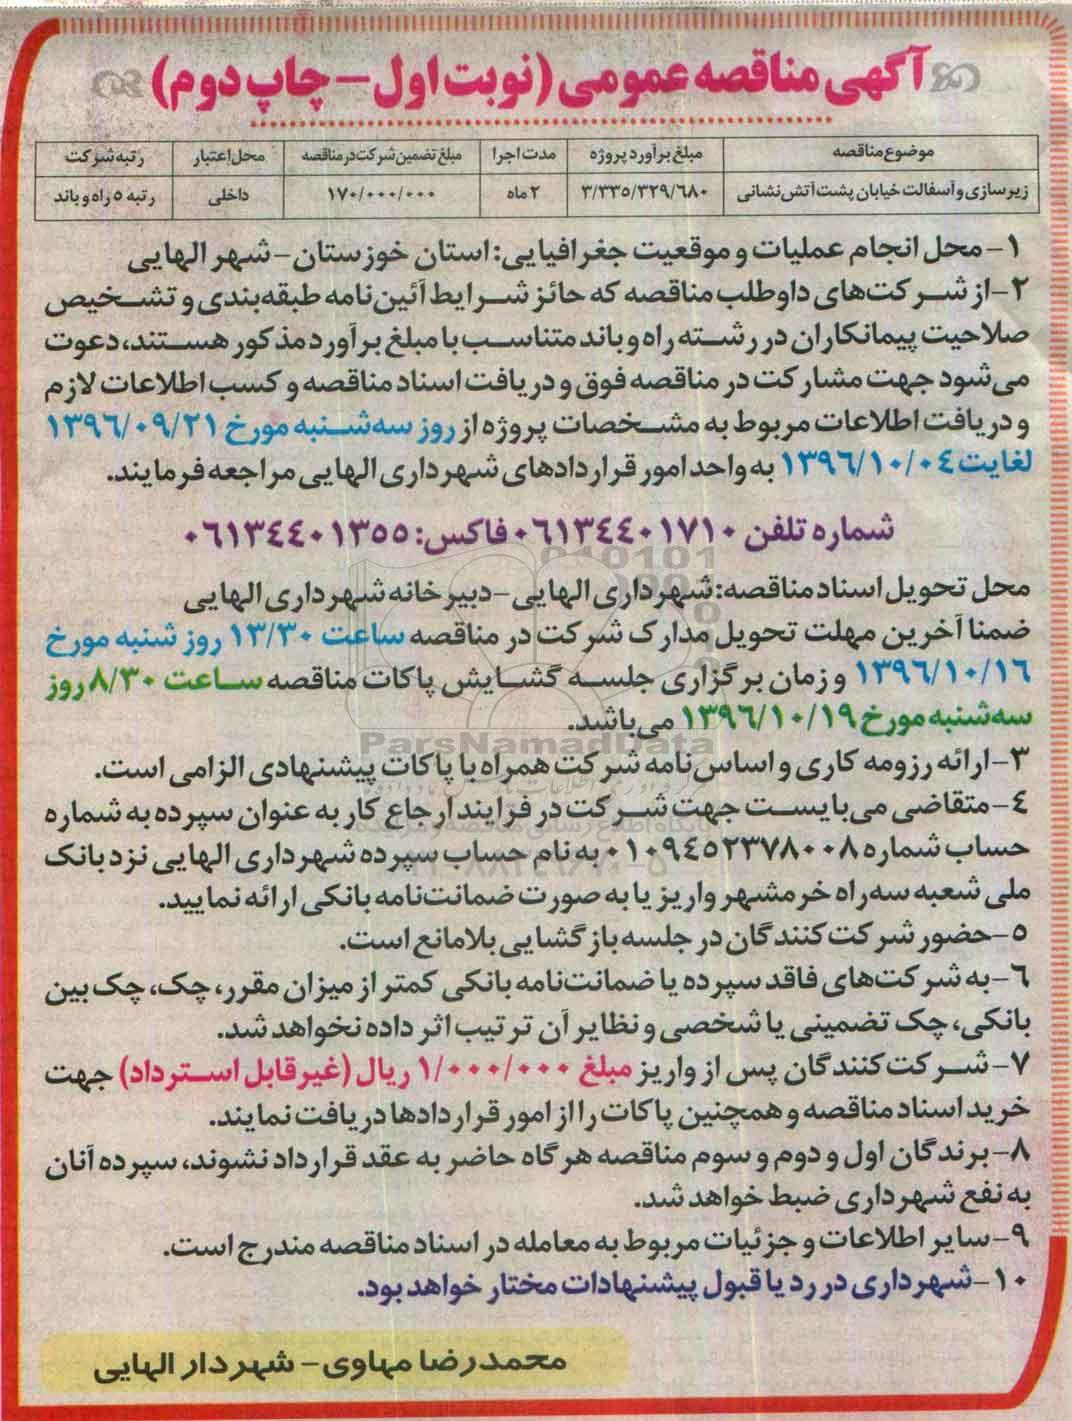 آگهی مناقصه عمومی (نوبت اول – چاپ دوم)
موضوع مناقصه | مبلغ برآورد پروژه | مدت اجرا | مبلغ تضمین شرکت در مناقصه | محل اعتبار | رتبه شرکت
زیرسازی و آسفالت خیابان پشت آتش‌نشانی | ۳/۳۳۵/۳۲۹/۶۸۰ | ۲ ماه | ۱۷۰/۰۰۰/۰۰۰ | داخلی | رتبه ۵ راه و باند
۱- محل انجام عملیات و موقعیت جغرافیایی: استان خوزستان- شهر الهایی
۲- از شرکت‌های داوطلب مناقصه که حائز شرایط آئین‌نامه طبقه‌بندی و تشخیص
صلاحیت پیمانکاران در رشته راه و باند متناسب با مبلغ برآورد مذکور هستند، دعوت
می‌شود جهت مشارکت در مناقصه فوق و دریافت اسناد مناقصه و کسب اطلاعات لازم
و دریافت اطلاعات مربوط به مشخصات پروژه از روز سه‌شنبه مورخ ۱۳۹۶/۰۹/۲۱
لغایت ۱۳۹۶/۱۰/۰۴ به واحد امور قراردادهای شهرداری الهایی مراجعه فرمایند.
شماره تلفن ۰۶۱۳۴۴۰۱۷۱۰ فاکس: ۰۶۱۳۴۴۰۱۳۵۵
محل تحویل اسناد مناقصه: شهرداری الهایی- دبیرخانه شهرداری الهایی
ضمنا آخرین مهلت تحویل مدارک شرکت در مناقصه ساعت ۱۳/۳۰ روز شنبه مورخ
۱۳۹۶/۱۰/۱۶ و زمان برگزاری جلسه گشایش پاکات مناقصه ساعت ۸/۳۰ روز
سه‌شنبه مورخ ۱۳۹۶/۱۰/۱۹ می‌باشد.
ParsNamadData
۳- ارائه رزومه کاری و اساس‌نامه شرکت همراه با پاکات پیشنهادی الزامی است.
۴- متقاضی می‌بایست جهت شرکت در فرایند ارجاع کار به عنوان سپرده به شماره
حساب شماره ۰۱۰۹۴۵۲۳۷۸۰۰۸ به نام حساب سپرده شهرداری الهایی نزد بانک
ملی شعبه سه‌راه خرمشهر واریز یا به صورت ضمانت‌نامه بانکی ارائه نمایید.
۵- حضور شرکت‌کنندگان در جلسه بازگشایی بلامانع است.
۶- به شرکت‌های فاقد سپرده یا ضمانت‌نامه بانکی کمتر از میزان مقرر، چک، چک بین
بانکی، چک تضمینی یا شخصی و نظایر آن ترتیب اثر داده نخواهد شد.
۷- شرکت‌کنندگان پس از واریز مبلغ ۱/۰۰۰/۰۰۰ ریال (غیرقابل استرداد) جهت
خرید اسناد مناقصه و همچنین پاکات را از امور قراردادها دریافت نمایند.
۸- برندگان اول و دوم و سوم مناقصه هرگاه حاضر به عقد قرارداد نشوند، سپرده آنان
به نفع شهرداری ضبط خواهد شد.
۹- سایر اطلاعات و جزئیات مربوط به معامله در اسناد مناقصه مندرج است.
۱۰- شهرداری در رد یا قبول پیشنهادات مختار خواهد بود.
محمدرضا مهاوی- شهردار الهایی